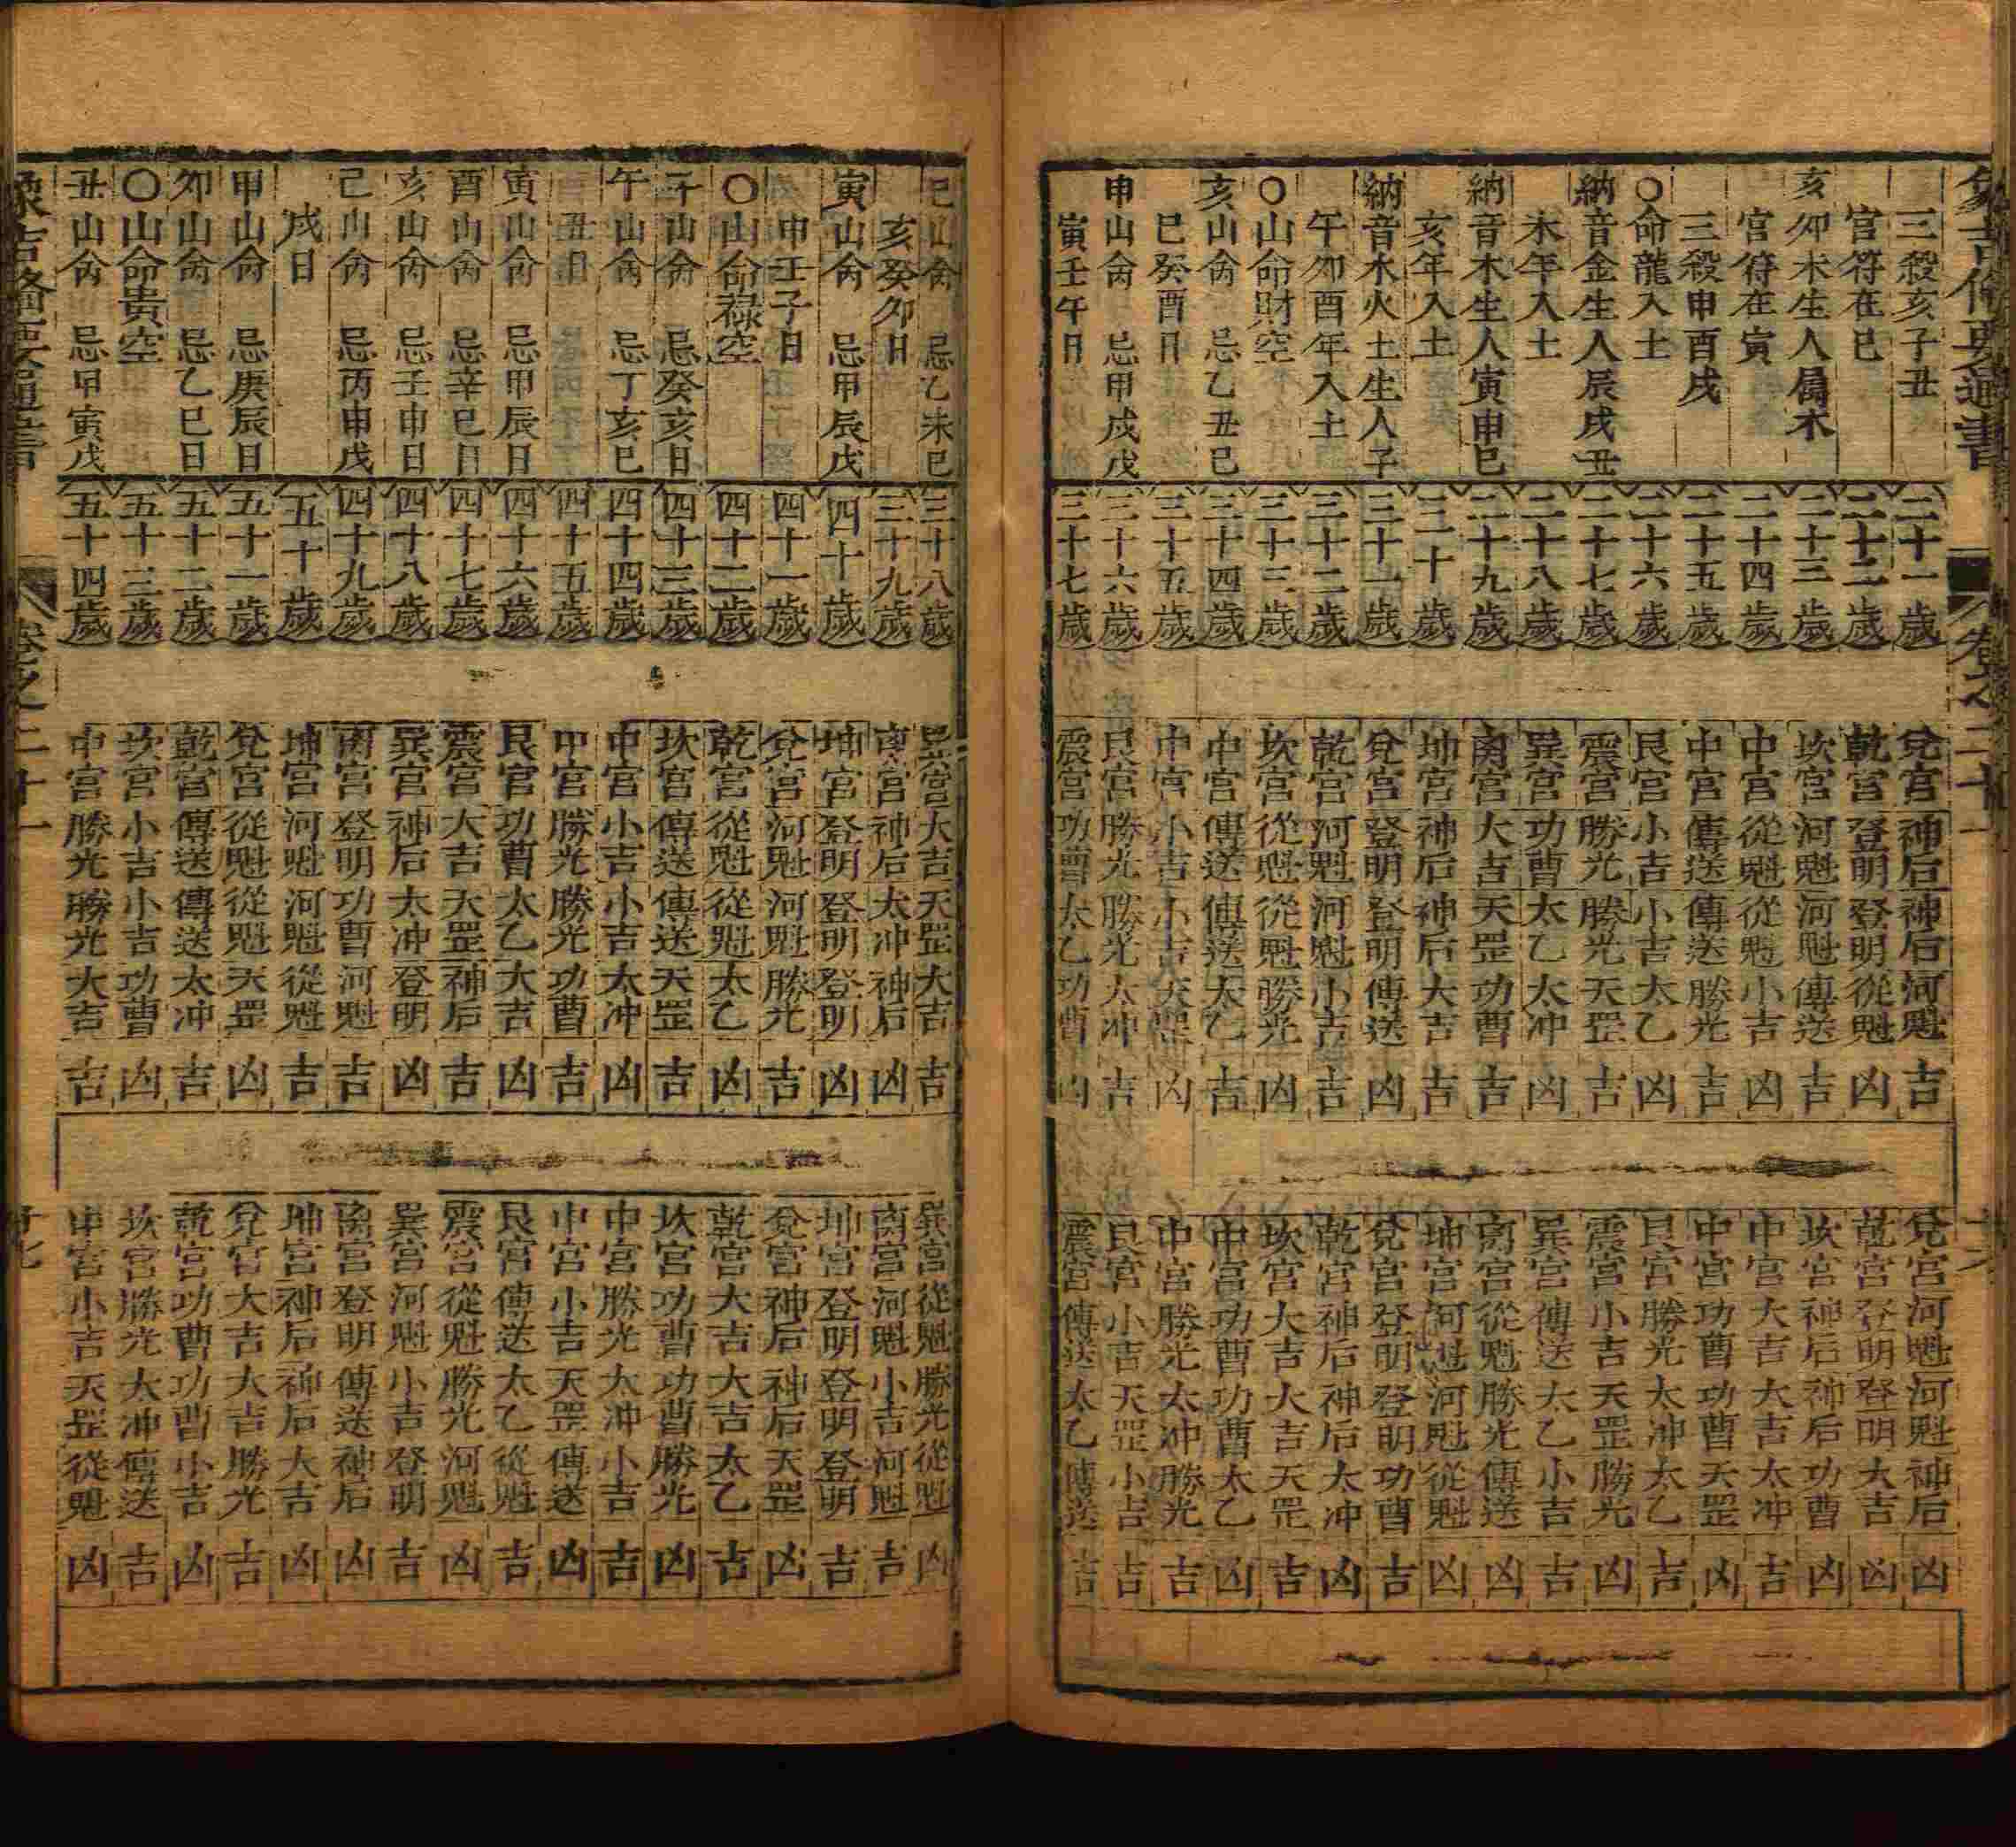 象吉備要通書 卷之二十一
三殺亥子丑 二十一歲 兌宮神后神后河魁吉 兌宮河魁河魁神后凶
官符在巳 二十二歲 乾宮登明登明從魁凶 乾宮登明登明大吉凶
亥卯未生人屬木 二十三歲 坎宮河魁河魁傳送吉 坎宮神后神后功曹凶
官符在寅 二十四歲 中宮從魁從魁小吉凶 中宮大吉大吉太冲吉
三殺申酉戌 二十五歲 中宮傳送傳送勝光吉 中宮功曹功曹天罡凶
○命龍入土 二十六歲 艮宮小吉小吉太乙凶 艮宮勝光太冲太乙吉
納音金生人辰戌丑 二十七歲 震宮勝光勝光天罡吉 震宮小吉天罡勝光凶
未年入土 二十八歲 巽宮功曹太乙太冲凶 巽宮傳送太乙小吉吉
納音木生人寅申巳 二十九歲 离宮大吉天罡功曹吉 离宮從魁勝光傳送凶
亥年入土 三十歲 坤宮神后神后大吉吉 坤宮河魁河魁從魁凶
納音水火土生人子 三十一歲 兌宮登明登明傳送凶 兌宮登明登明功曹吉
午卯酉年入土 三十二歲 乾宮河魁河魁小吉吉 乾宮神后神后太冲凶
○山命財空 三十三歲 坎宮從魁從魁勝光凶 坎宮大吉大吉天罡吉
亥山命 忌乙丑巳 三十四歲 中宮傳送傳送太乙吉 中宮功曹功曹太乙凶
巳癸酉日 三十五歲 中宮小吉小吉天罡凶 中宮勝光太冲勝光吉
申山命 忌甲戌戊 三十六歲 艮宮勝光勝光太冲吉 艮宮小吉天罡小吉吉
寅壬午日 三十七歲 震宮功曹太乙功曹凶 震宮傳送太乙傳送吉
巳山命 忌乙未巳 三十八歲 巽宮大吉天罡大吉吉 巽宮從魁勝光從魁凶
亥癸卯日 三十九歲 离宮神后太冲神后凶 离宮河魁小吉河魁吉
寅山命 忌甲辰戊 四十歲 坤宮登明登明登明凶 坤宮登明登明登明吉
申壬子日 四十一歲 兌宮河魁河魁勝光吉 兌宮神后神后天罡凶
○山命祿空 四十二歲 乾宮從魁從魁太乙凶 乾宮大吉大吉太乙吉
子山命 忌癸亥日 四十三歲 坎宮傳送傳送天罡吉 坎宮功曹功曹勝光凶
午山命 忌丁亥巳 四十四歲 中宮小吉小吉太冲凶 中宮勝光太冲小吉吉
丑日 四十五歲 中宮勝光勝光功曹吉 中宮小吉天罡傳送凶
寅山命 忌甲辰日 四十六歲 艮宮功曹太乙大吉凶 艮宮傳送太乙從魁吉
酉山命 忌辛巳日 四十七歲 震宮大吉天罡神后吉 震宮從魁勝光河魁凶
亥山命 忌壬申日 四十八歲 巽宮神后太冲登明凶 巽宮河魁小吉登明吉
己山命 忌丙申戊 四十九歲 离宮登明功曹河魁吉 离宮登明傳送神后凶
戌日 五十歲 坤宮河魁河魁從魁吉 坤宮神后神后大吉凶
甲山命 忌庚辰日 五十一歲 兌宮從魁從魁天罡凶 兌宮大吉大吉勝光吉
卯山命 忌乙巳日 五十二歲 乾宮傳送傳送太冲吉 乾宮功曹功曹小吉凶
○山命貴空 五十三歲 坎宮小吉小吉功曹凶 坎宮勝光太冲傳送吉
丑山命 忌甲寅戊 五十四歲 中宮勝光勝光大吉吉 中宮小吉天罡從魁凶